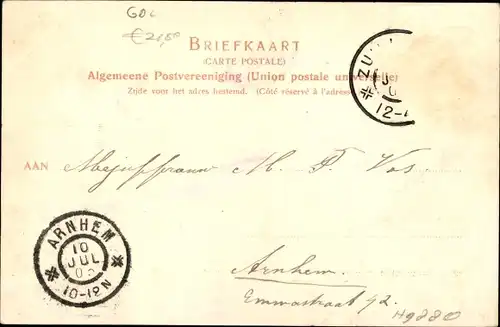 GOC
€20,50
BRIEFKAART
(CARTE POSTALE)
Algemeene Postvereeniging (Union postale universelle)
Zijde voor het adres bestemd. (Côté réservé à l'adresse)
ZU
12-
AAN Mejuffrouw M. P. Vos
ARNHEM
10
JUL
10-12N
Arnhem.
Emmastraat 92.
Hg220